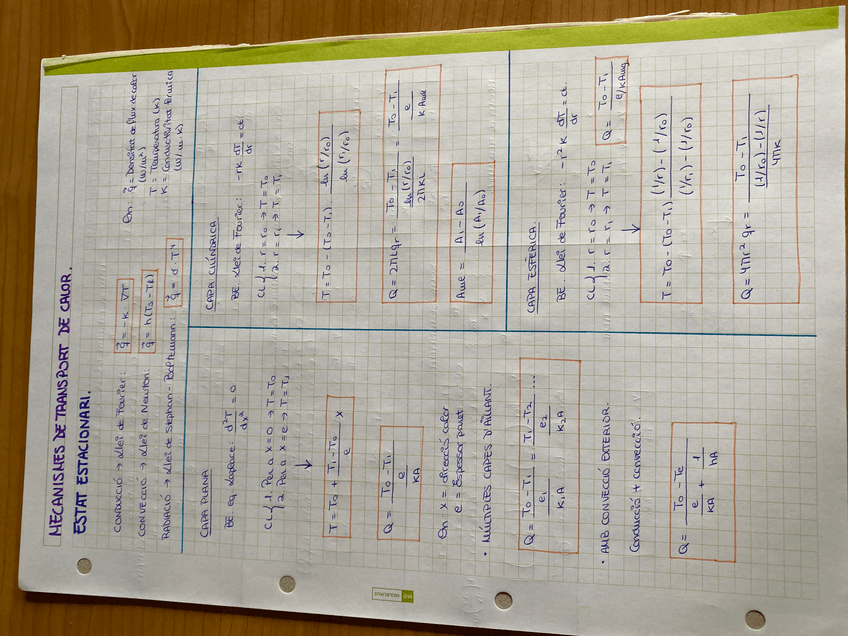 MECANISMES DE TRANSPORT DE CALOR.
ESTAT ESTACIONARI.
CONDUCCIÓ → Llei de Fourier: q⃗ = -K ∇T
CONVECCIÓ → Llei de Newton: q⃗ = h(Ts - Tf)
RADIACIÓ → Llei de Stephan-Boltzmann: q⃗ = σ·T⁴
On: q⃗ = Densitat de flux de calor
(W/m²)
T = Temperatura (K)
K = Conductivitat tèrmica
(W/m·K)
CAPA PLANA
BE eq. Laplace: d²T/dx² = 0
CL { 1. Per a x=0 → T=T0
2. Per a x=e → T=T1
↓
T = T0 + (T1 - T0)/e x
Q = (T0 - T1)/(e/KA)
On x = direcció calor
e = Espessor paret
• MÚLTIPLES CAPES D'AÏLLANT.
Q = (T0 - T1)/(e1/K1A) = (T1 - T2)/(e2/K2A) ...
• AMB CONVECCIÓ EXTERIOR.
Conducció + convecció.
Q = (T0 - Te)/(e/KA + 1/hA)
CAPA CILÍNDRICA
BE Llei de Fourier: -rK dT/dr = ct
CL { 1. r=r0 → T=T0
2. r=r1 → T=T1
↓
T = T0 - (T0 - T1) ln(r/r0)/ln(r1/r0)
Q = 2πLqr = (T0 - T1)/(ln(r1/r0)/2πKL) = (T0 - T1)/(e/K Aml)
Aml = (A1 - A0)/ln(A1/A0)
CAPA ESFÈRICA.
BE. Llei de Fourier: -r² K dT/dr = ct.
CL { 1. r=r0 → T=T0
2. r=r1 → T=T1
↓
Q = (T0 - T1)/(e/KAmg)
T = T0 - (T0 - T1) ((1/r) - (1/r0))/((1/r1) - (1/r0))
Q = 4πr² qr = (T0 - T1)/(((1/r0) - (1/r))/4πK)
MIQUELRIUS